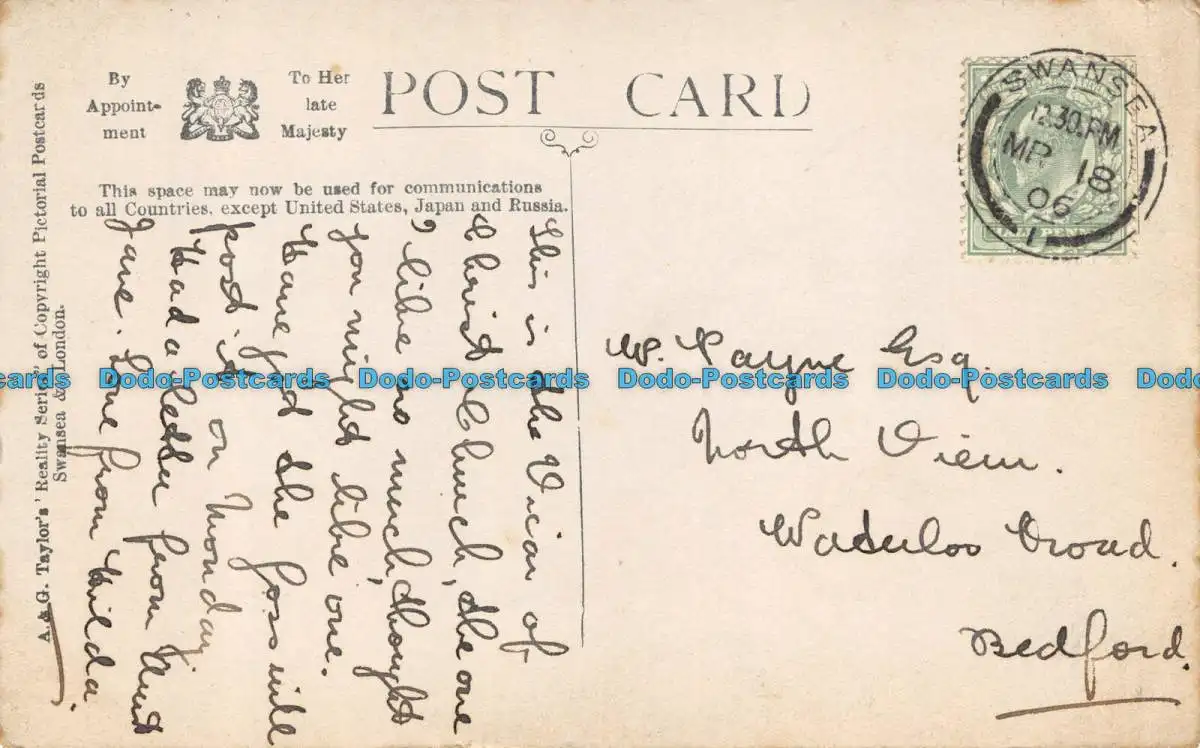 By
Appoint-
ment
To Her
late
Majesty
POST CARD
This space may now be used for communications
to all Countries, except United States, Japan and Russia.
A. & G. Taylor's' Reality Series" of Copyright Pictorial Postcards
Swansea & London.
SWANSEA
12.30.PM
MR 18
06
1
This is the Vicar of
Christ Church, the one
I like so much, thought
you might like one.
Have got the Goss will
post it on Monday.
Had a letter from Aunt
Jane. Love from Hilda.
W. Payne Esq.
North View.
Waterloo Road.
Bedford.
Dodo-Postcards Dodo-Postcards Dodo-Postcards Dodo-Postcards